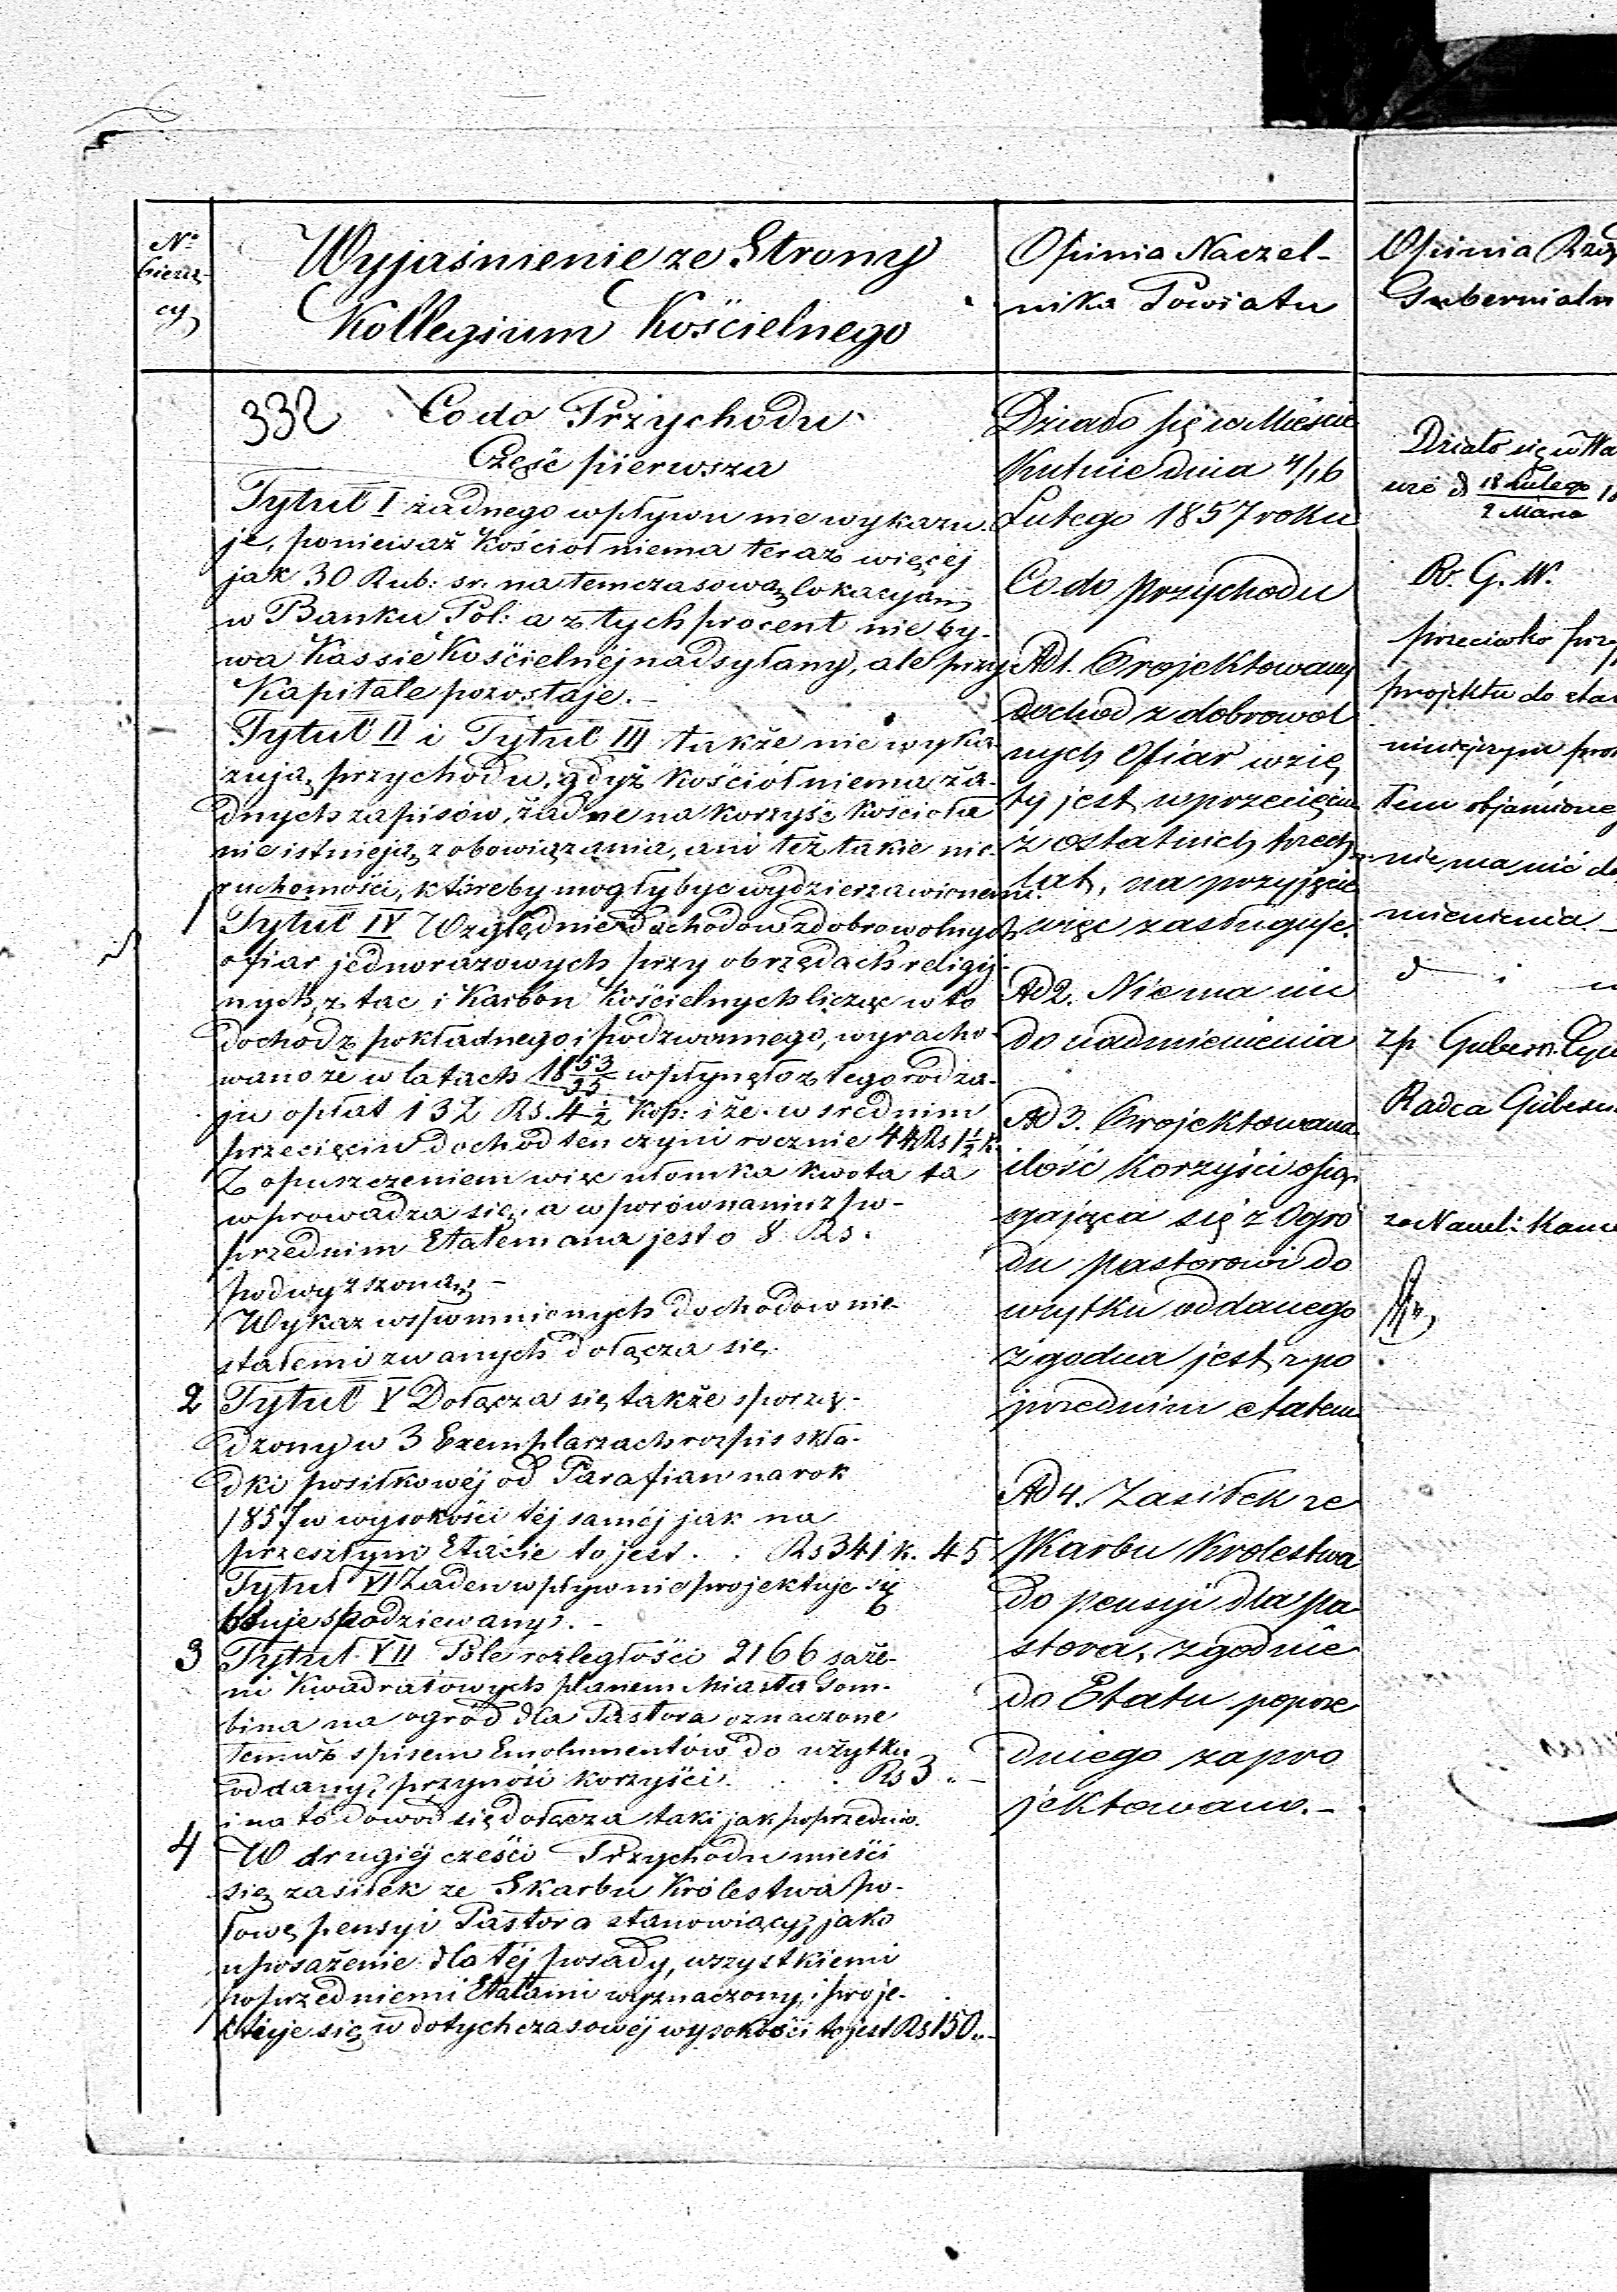 No
bieżą-
cy
Wyjaśnienie ze Strony
Kollegium Kościelnego
332 Co do Przychodu
Część pierwsza
Tytuł I żadnego wpływu nie wykazu-
je, ponieważ Kościoł niema teraz więcéj
jak 30 Rub: sr. na temczasową lokacyją
w Banku Pol: a z tych procent nie by-
wa Kassie Kościelnéj nadsyłany, ale przy
Kapitale pozostaje. –
Tytuł II i Tytuł III także nie wyka-
zują przychodu, gdyż Kościół niema ża-
dnych zapisów, żadne na korzyść kościoła
nie istnieją zobowiązania, ani też takie nie-
ruchomości, któreby mogły być wydzierżawionemi.
1 Tytuł IV Względnie dochodow z dobrowolnych
ofiar jednorazowych przy obrzędach religij-
nych, z tac i Karbon Kościelnych licząc w to
dochod z pokładnego i podzwonnego, wyracho-
wano że w latach 1853/55 wpłynęło z tego rodza-
ju opłat 132 Rs. 4½ kop: i że w srednim
przecięciu dochod ten czyni rocznie 44 Rs 1½ k.
Z opuszczeniem więc ułomka kwota ta
wprowadza się, a w porównaniu z po-
przednim Etatem ona jest o 8 Rs.
podwyższoną –
Wykaz wspomnionych dochodow nie-
stałemi zwanych dołącza się.
2 Tytuł V Dołącza się także sporzą-
dzony w 3 Exemplarzach rozpis skła-
dki posiłkowéj od Parafian na rok
1857 w wysokości téj saméj jak na
przeszłym Etacie to jest . . Rs 341 k. 45
Tytuł VI Żaden wpływ nie projektuje się
spodziewany. –
3 Tytuł VII Pole rozległości 2166 sąże-
ni Kwadratowych planem Miasta Gom-
bina na ogród dla Pastora oznaczone
temuż spisem Emolumentów do użytku
oddany, przynosi korzyści . . . Rs 3 „ –
i na to dowód się dołącza taki jak poprzednio.
4 W drugiéj części Przychodu mieści
się zasiłek ze Skarbu Królestwa po-
łowę pensyi Pastora stanowiący, jako
uposażenie dla téj posady, wszystkiemi
poprzedniemi Etatami wyznaczony, i proje-
ktuje się w dotychczasowéj wysokości to jest Rs 150 „ –
Opinia Naczel-
nika Powiatu
Działo się w Mieście
Kutnie dnia 4/16
Lutego 1857 roku
Co do przychodu
Ad 1. Projektowany
dochod z dobrowol
nych Ofiar wzię
ty jest w przecięciu
z ostatnich trzech
lat, na przyjęcie
więc zasługuje.
Ad 2. Nie ma nic
do nadmienienia
Ad 3. Projektowana
ilość Korzyści osią
gająca się z Ogro
du pastorowi do
użytku oddanego
zgodna jest z po
przednim etatem
Ad 4. Zasiłek ze
Skarbu Krolestwa
do pensyi dla pa
stora, zgodnie
do Etatu poprze
dniego zapro
jektowano. –
Opinia Rzą
Gubernialn
Działo się w Wa
wie d 18 Lutego 18
2 Marca
R. G. W.
przeciwko prz
projektu do eta
niniejszym pro
tem objaśnione
nie ma nic do
mienienia –
zp. Gubern. Cyw
Radca Gubern.
za Naczel: Kance